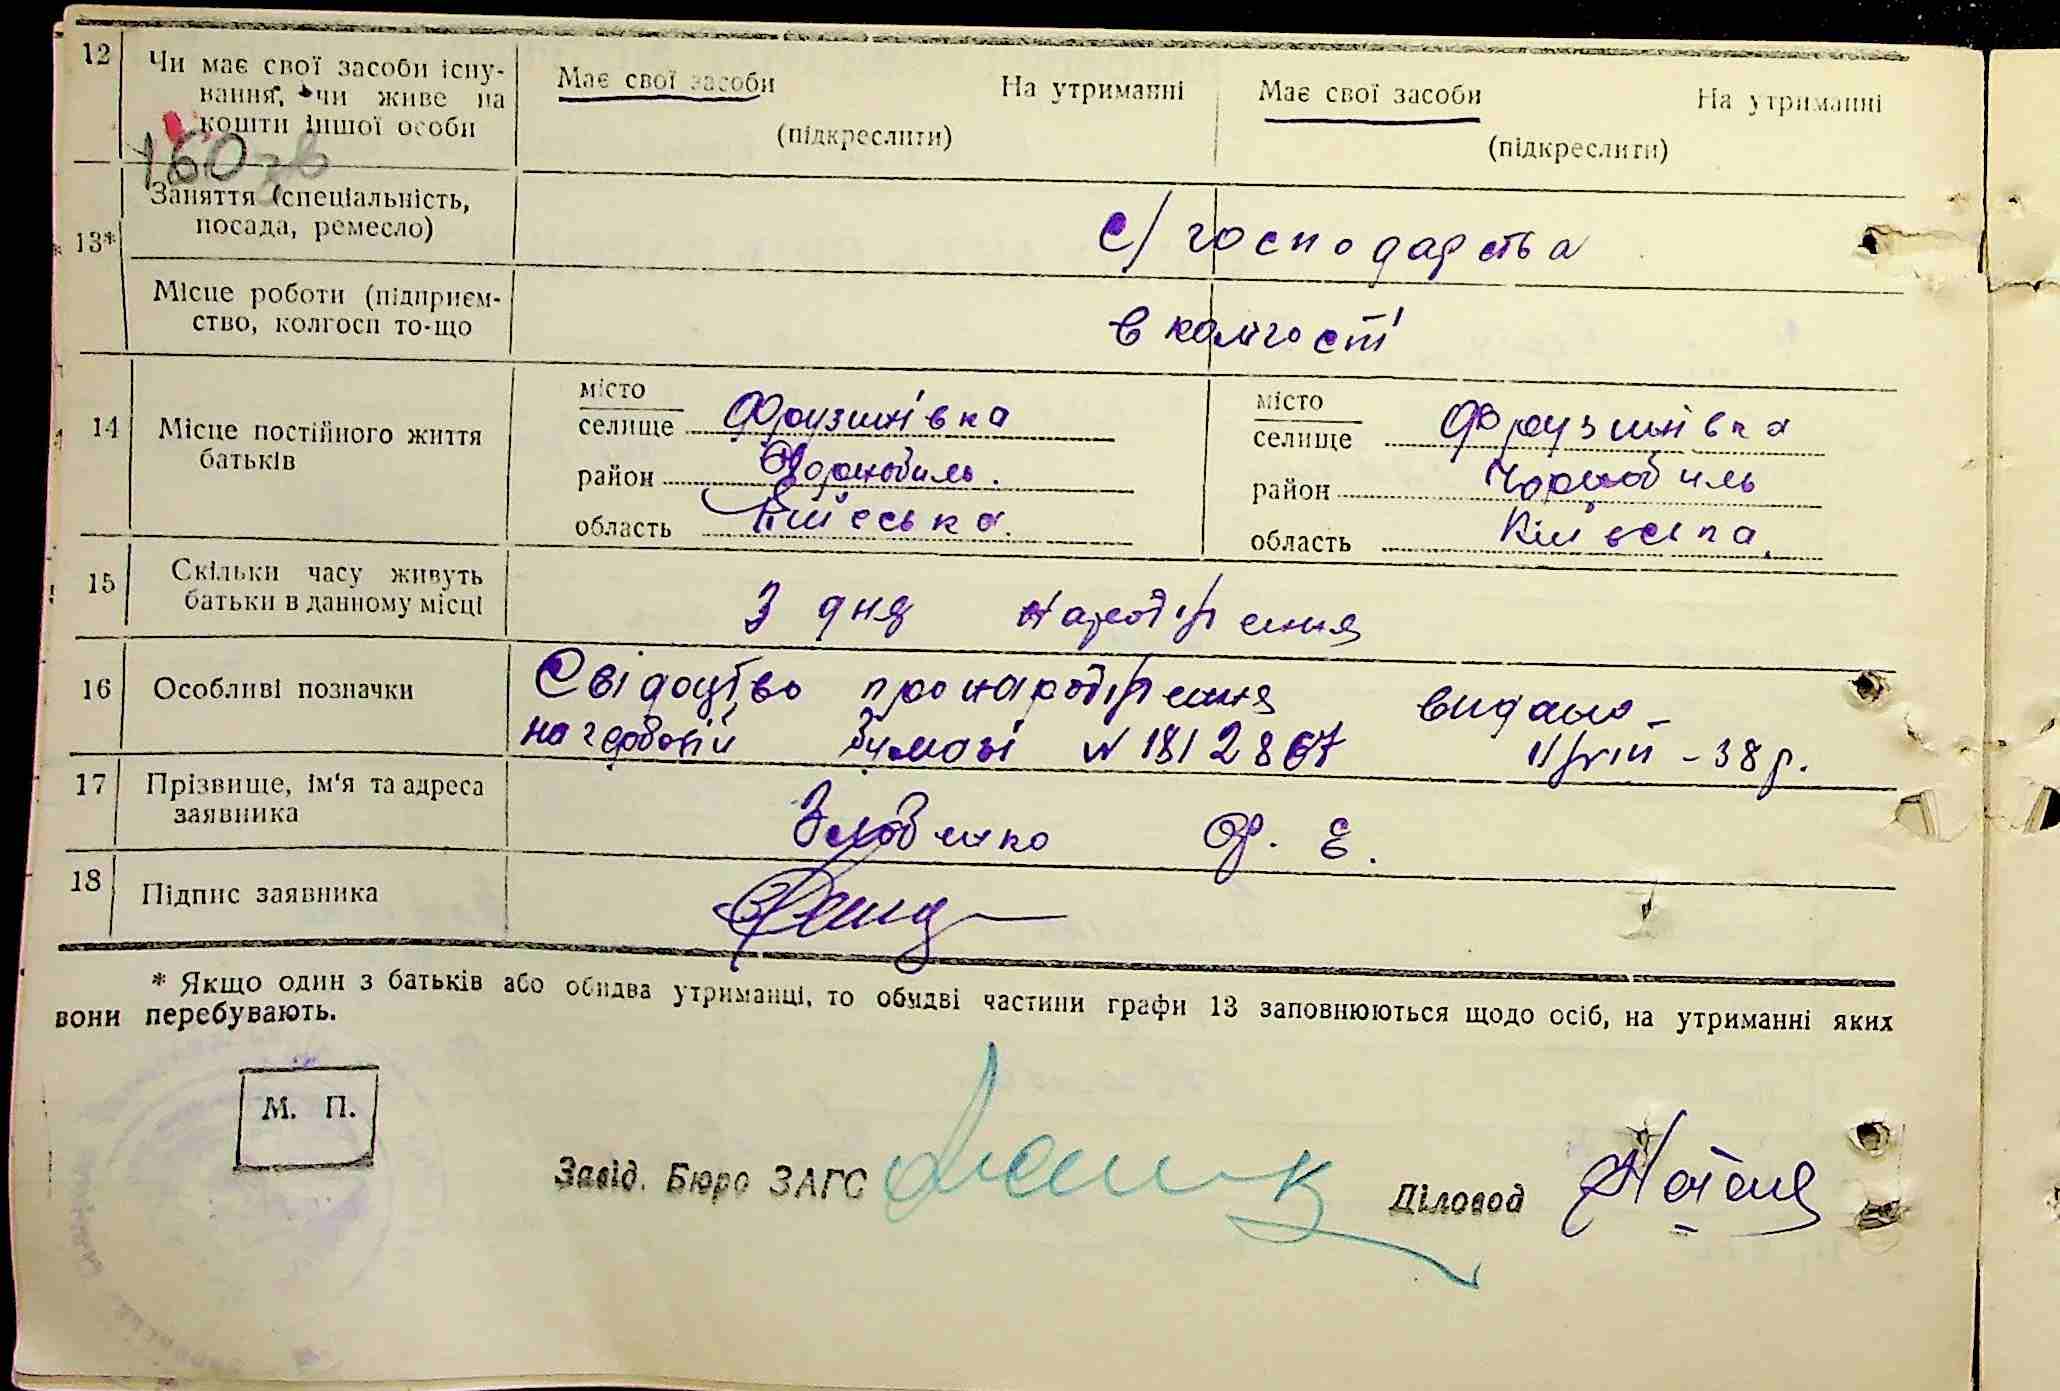 12 Чи має свої засоби існу-
вання, чи живе на
кошти іншої особи
Має свої засоби На утриманні
(підкреслити)
Має свої засоби На утриманні
(підкреслити)
160 зв
13* Заняття (спеціальність,
посада, ремесло)
с/господарства
Місце роботи (підприєм-
ство, колгосп то-що
в колгості
14 Місце постійного життя
батьків
місто
селище Фрузинівка
район Чорнобиль.
область Київська.
місто
селище Фрузинівка
район Чорнобиль
область Київська.
15 Скільки часу живуть
батьки в данному місці
З дня народження
16 Особливі позначки
Свідоцтво про народження видано-
на гербовій бумазі № 1812867 11/VIII-38р.
17 Прізвище, ім'я та адреса
заявника
Злобенко Ф. Е.
18 Підпис заявника
* Якщо один з батьків або обидва утриманці, то обидві частини графи 13 заповнюються щодо осіб, на утриманні яких
вони перебувають.
М. П.
Завід. Бюро ЗАГС
Діловод